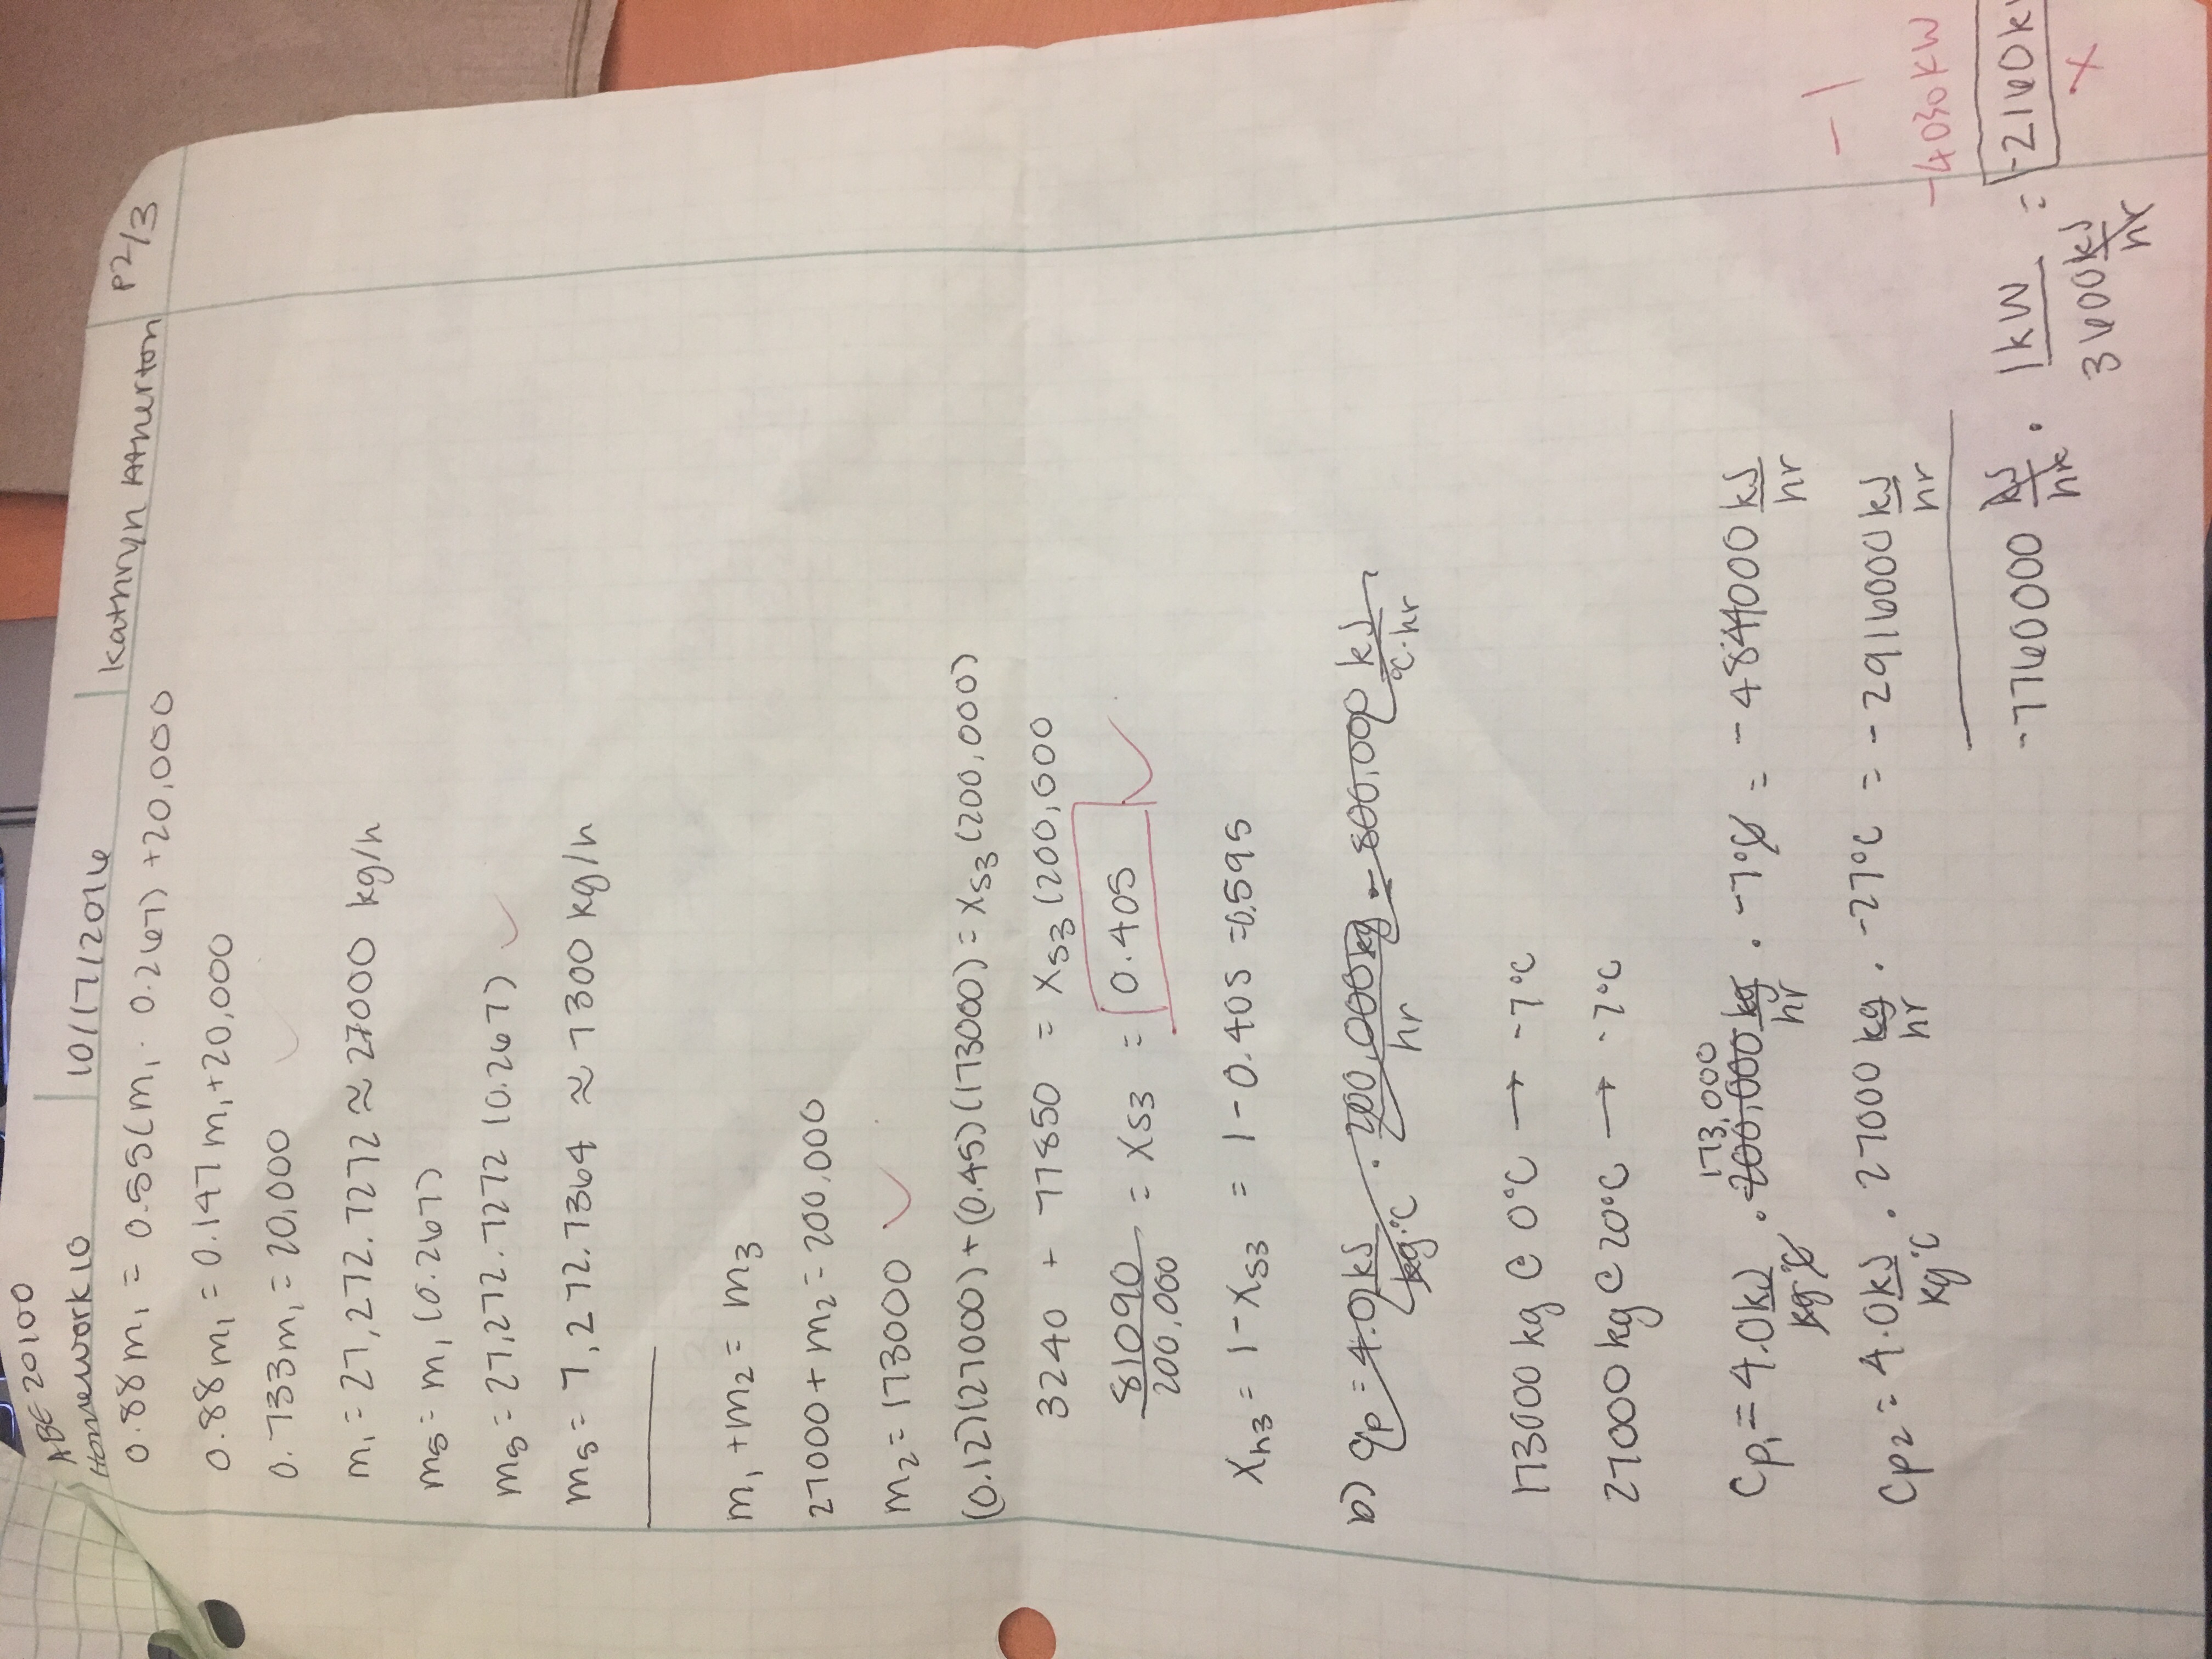 ABE 20100
Homework 10
10/17/2016
Kathryn Atherton
P2/3
0.88m₁ = 0.55(m₁ · 0.267) + 20,000
0.88m₁ = 0.147m₁ + 20,000
0.733m₁ = 20,000
m₁ = 27,272.7272 ≈ 27000 kg/h
m₅ = m₁(0.267)
m₅ = 27,272.7272 (0.267)
m₅ = 7,272.7364 ≈ 7300 kg/h
m₁ + m₂ = m₃
27000 + m₂ = 200,000
m₂ = 173000
(0.12)(27000) + (0.45)(173000) = xS3 (200,000)
3240 + 77850 = xS3 (200,000
81090/200,000 = xS3 = 0.405
xh3 = 1 - xS3 = 1 - 0.405 = 0.595
b) qp = 4.0 kJ/kg·°C · 200,000 kg/hr = 800,000 kJ/°C·hr
173000 kg @ 0°C → -7°C
27000 kg @ 20°C → -7°C
173,000
Cp₁ = 4.0 kJ/kg°C · 200,000 kg/hr · -7°C = -4844000 kJ/hr
Cp₂ = 4.0 kJ/kg°C · 27000 kg/hr · -27°C = -2916000 kJ/hr
-1
-4030 kW
-7760000 kJ/hr · 1 kW/3600 kJ/hr = -2160 k
x